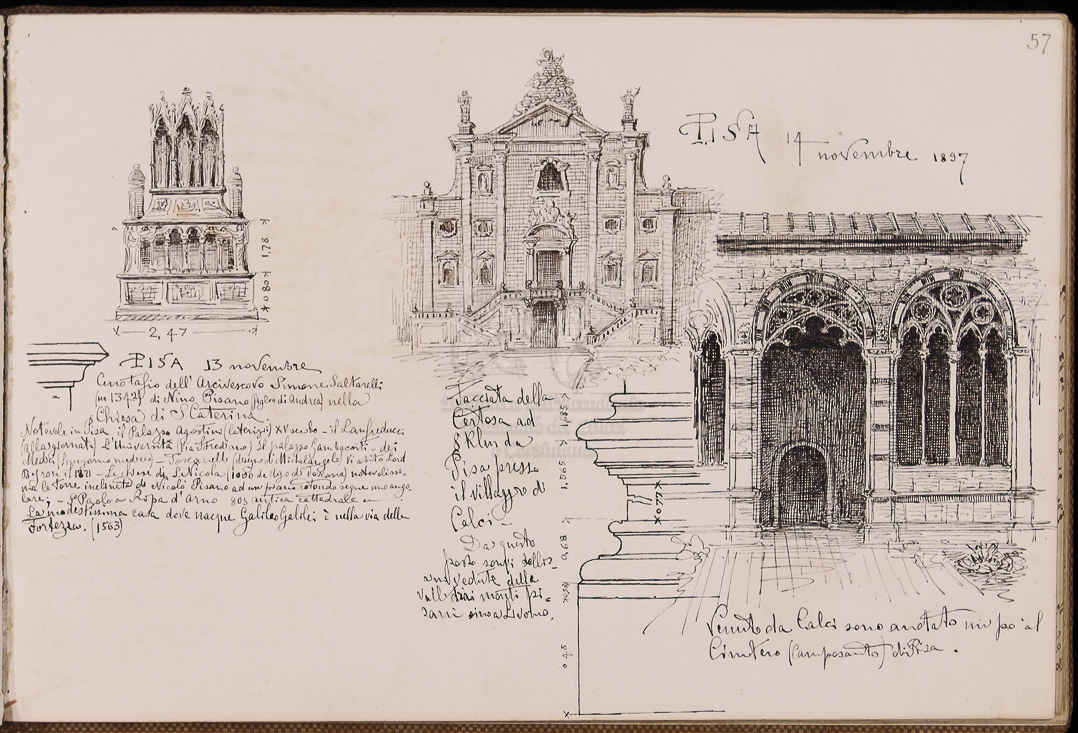 57
PISA 14 novembre 1897
1,78
0,80
2,47
PISA 13 novembre
Cenotafio dell' Arcivescovo Simone Saltarelli
(m 1342) di Nino Pisano (figlio di Andrea) nella
Chiesa di S Caterina
Notevole in Pisa il Palazzo Agostini (laterizi) XV secolo - il Lanfreducci
(alla giornata) L'Università (Via S Frediano) Il palazzo Gambacorti - dei
Medici - Toscanelli (disegno di Michelangelo) Vi abitò Lord
Byron nel 1821 - La chiesa di S. Nicola (1000 da Ugo di Toscana)
la torre inclinata di Nicolò Pisano ad un piano rotondo segue uno ango
lare; - S Paolo a Ripa d'Arno 805 antica cattedrale -
La modestissima casa dove nacque Galileo Galilei è nella via della
Fortezza. (1563)
Facciata della
Certosa ad
8 Klm da
Pisa presso
il villaggio di
Calci -
Da questo
posto
vedute della
valle dei monti pi=
sani sino a Livorno.
1,565
0,77
0,68
0,45
Venuto da Calci sono andato un po' al
Cimitero (Camposanto) di Pisa.